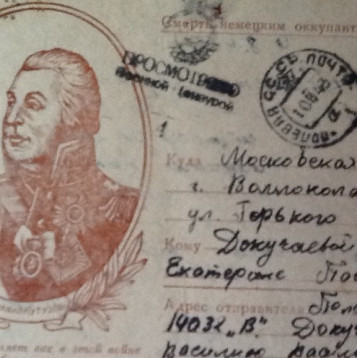 Смерть немецким оккупант
ПРОСМОТРЕНО
Военной Цензурой
ПОЛЕВАЯ ПОЧТ
1
Куда Московская
г. Волокола
ул. Горького
Кому Докучаевой
Екатерине
Адрес отправителя Пол
14032 „В" Доку
Василию
ляет вас в этой войне